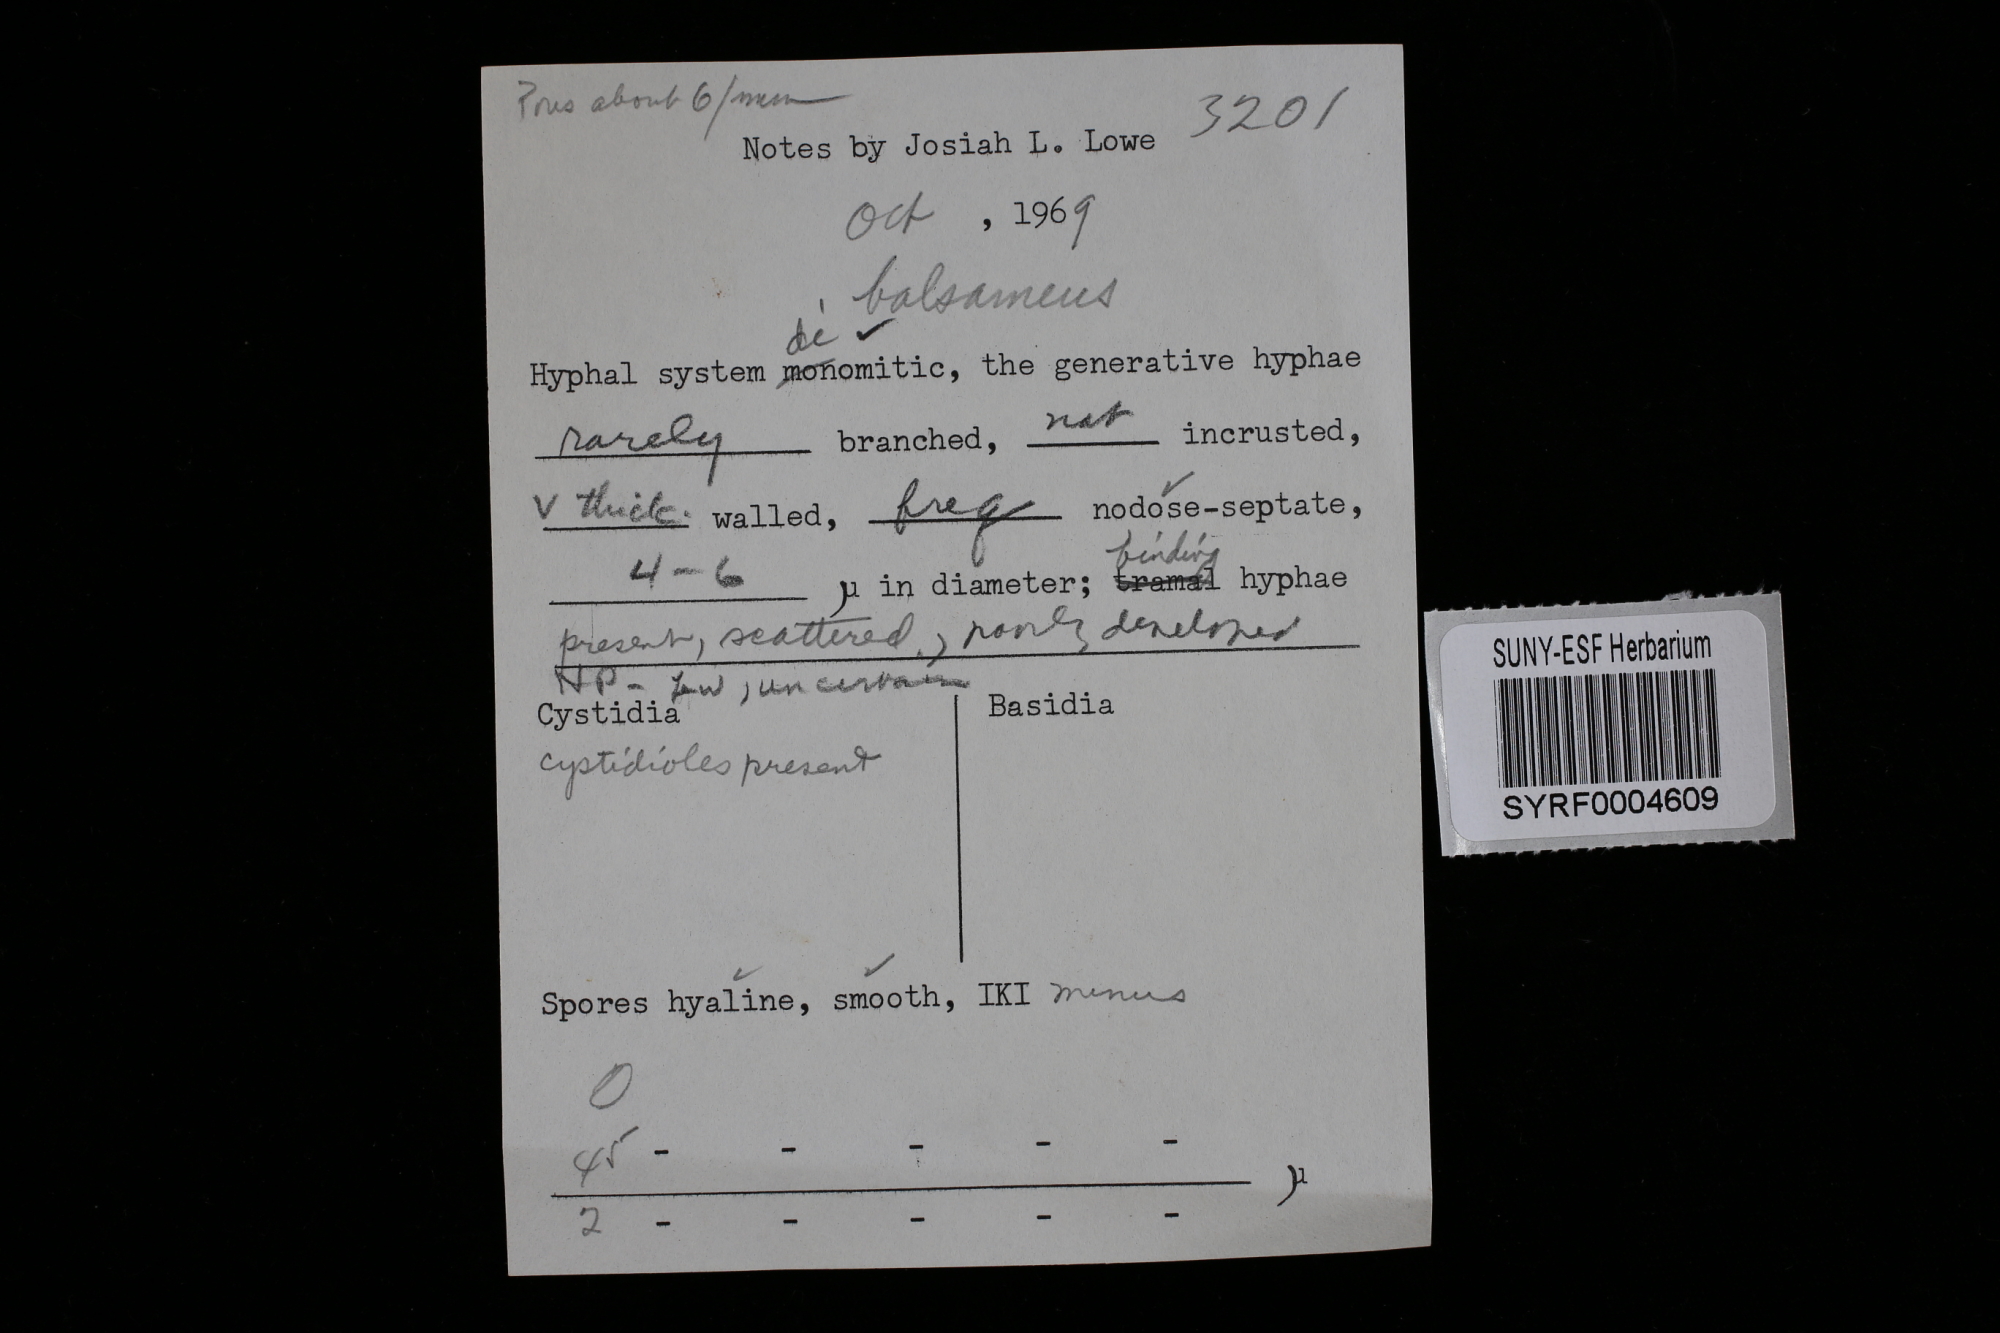 Pores about 6/mm
3201
Notes by Josiah L. Lowe
Oct , 1969
balsameus
di ✓
Hyphal system monomitic, the generative hyphae
rarely branched, not incrusted,
✓
V thick walled, freq nodose-septate,
binding
4-6 μ in diameter; tramal hyphae
present, scattered, poorly developed
HP - few, uncertain
Cystidia
Basidia
cystidioles present
✓ ✓
Spores hyaline, smooth, IKI minus
0
45 - - - - -
μ
2 - - - - -
SUNY-ESF Herbarium
SYRF0004609